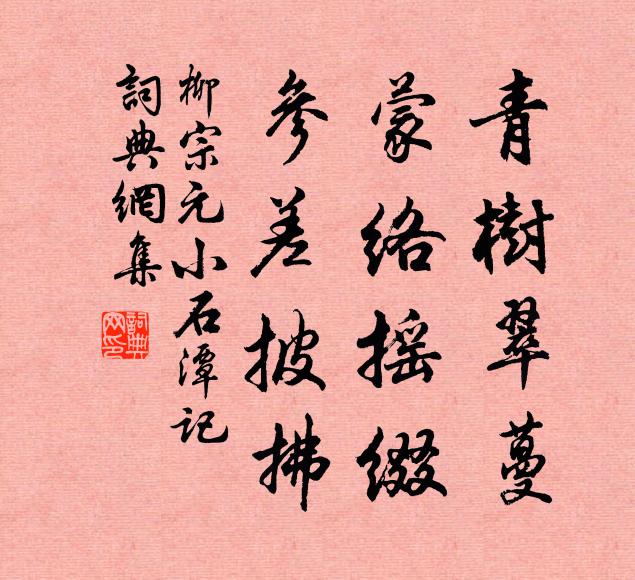 青樹翠蔓
蒙絡摇綴
參差披拂
柳宗元小石潭记
詞典網集
詞典網印